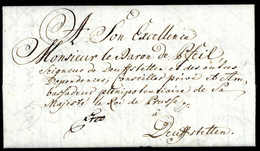 A Son Excellence
Monsieur le Baron de Pfeil,
Seigneur de Deuffstetten et des autres
Dependences, Conseiller privé et Am-
bassadeur plenipotentiaire de Sa
Majesté le Roi de Prusse,
à
Deuffstetten.